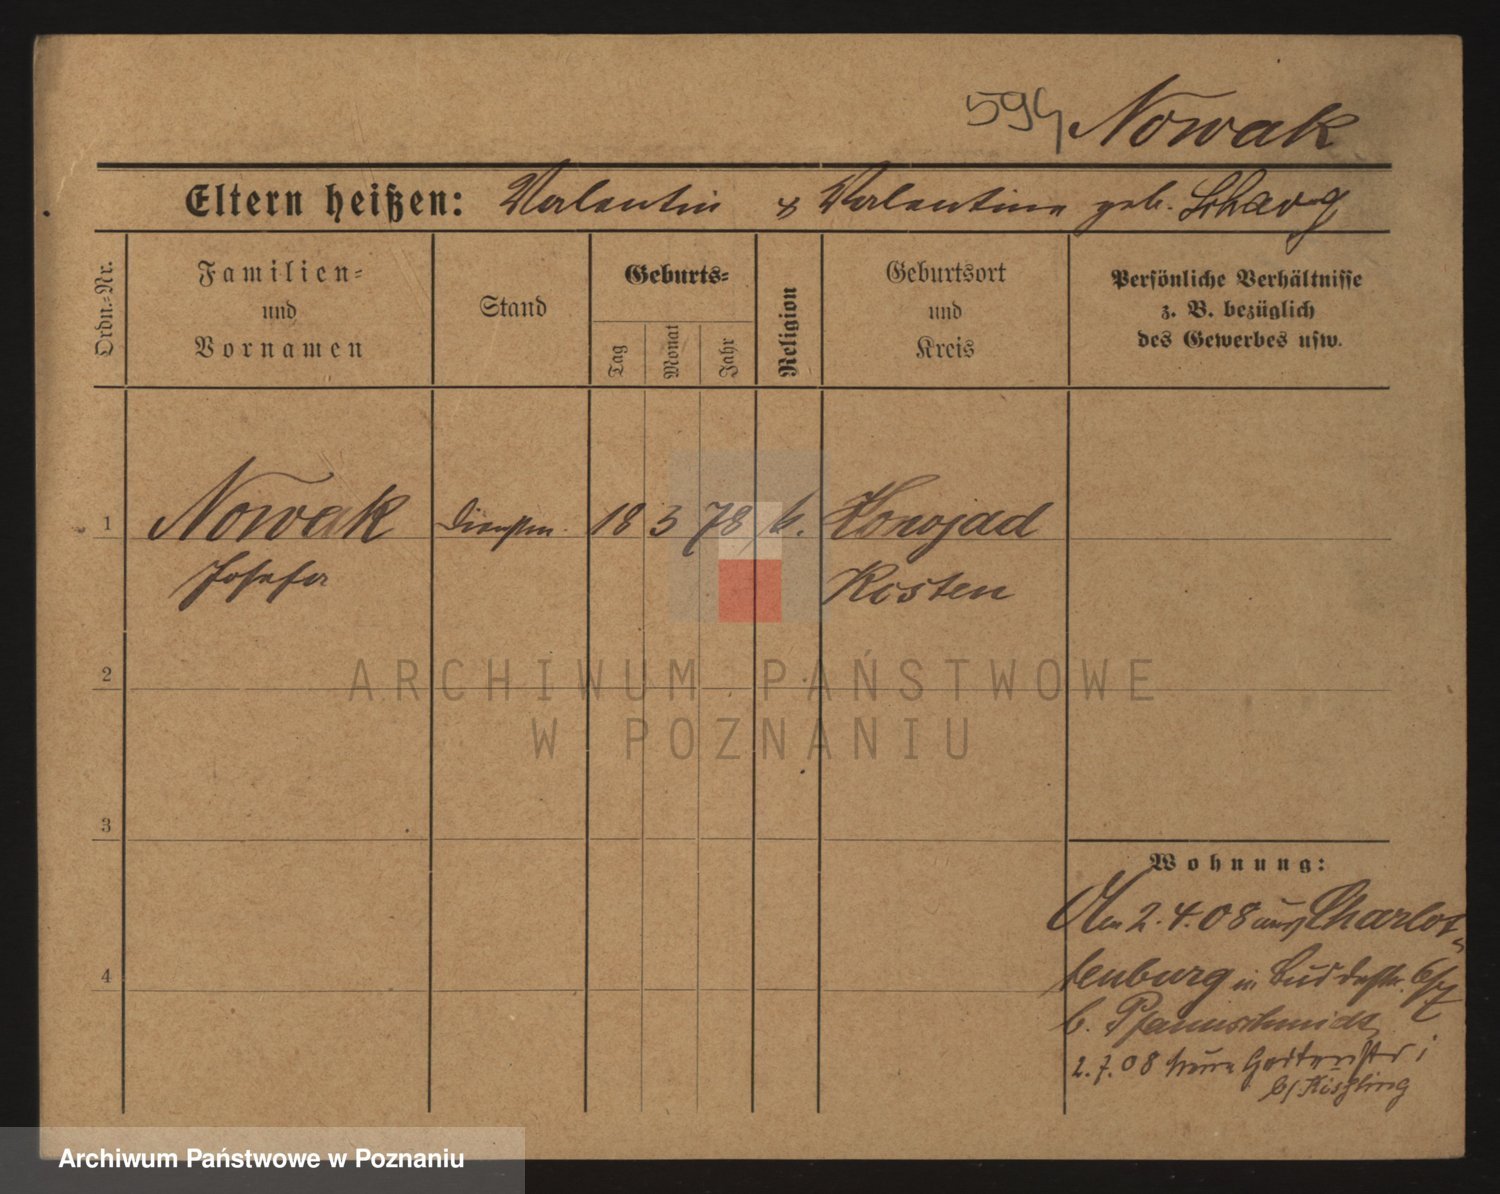 594 Nowak
Eltern heißen: Valentin & Valentine geb.
Ordn.=Nr.
Familien=
und
Vornamen
Stand
Geburts=
Tag
Monat
Jahr
Religion
Geburtsort
und
Kreis
Persönliche Verhältnisse
z. B. bezüglich
des Gewerbes usw.
1 Nowak Dienstm. 18 3 78 k. Konojad
Josefa Kosten
2
3
4
Wohnung:
Am 2.4.08 aus Charlot-
tenburg in 6/7
b. Pfannschmidt
2.7.08 neue Gartenstr
b/ Kißling
ARCHIWUM PAŃSTWOWE
W POZNANIU
Archiwum Państwowe w Poznaniu